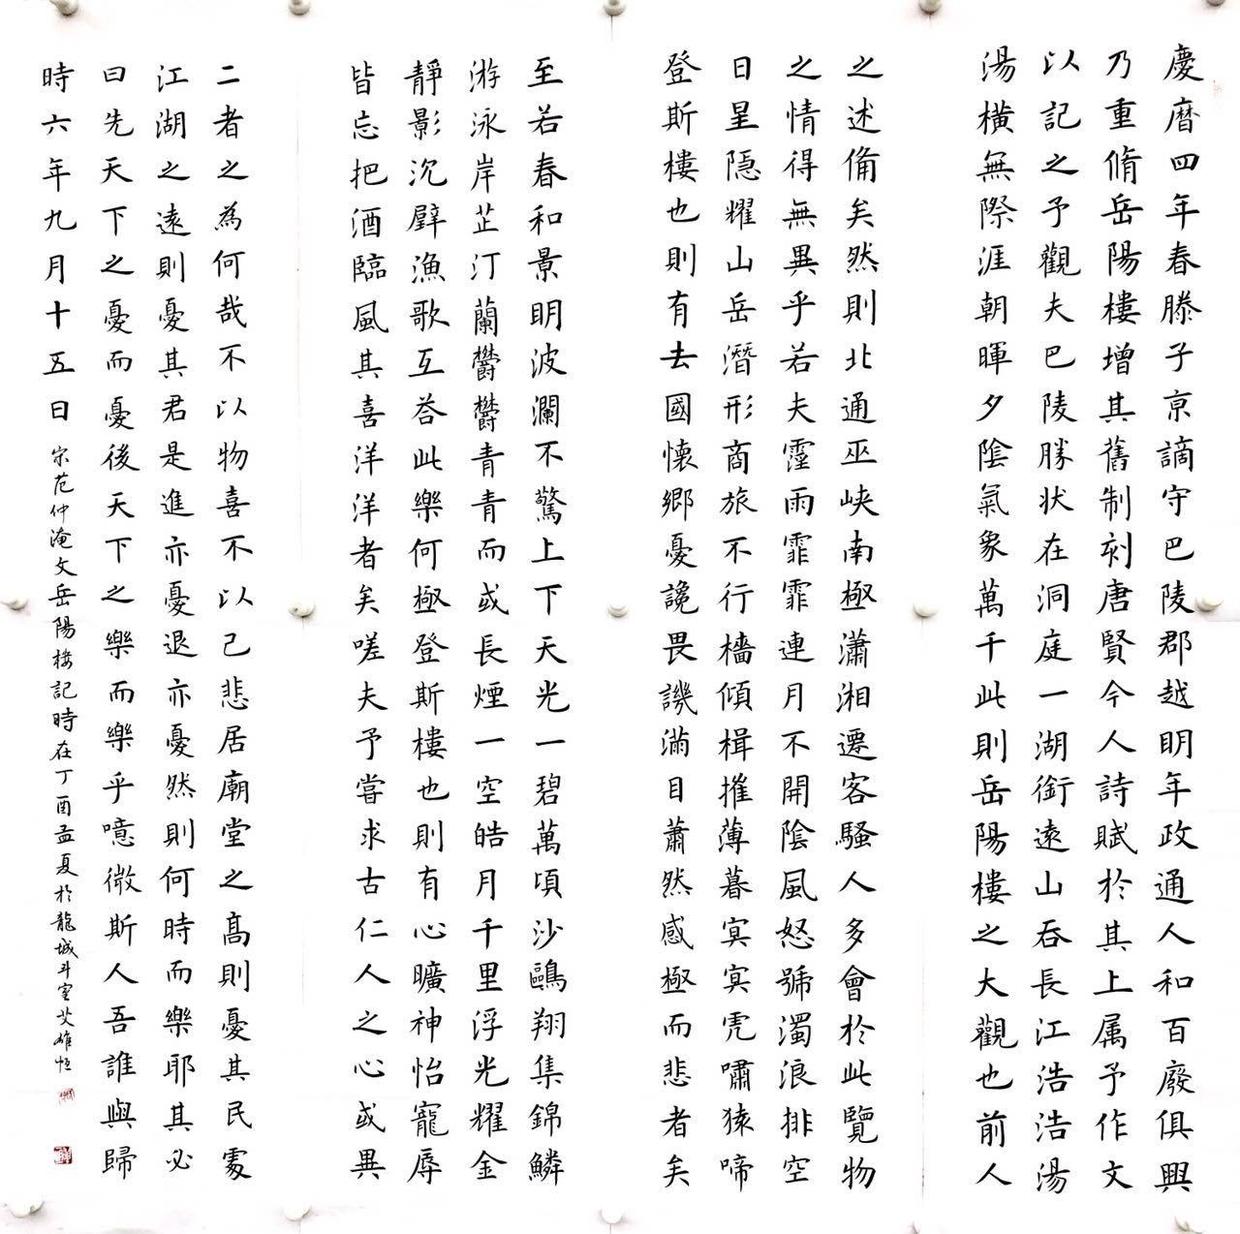 慶曆四年春滕子京謫守巴陵郡越明年政通人和百廢俱興
乃重脩岳陽樓增其舊制刻唐賢今人詩賦於其上属予作文
以記之予觀夫巴陵勝状在洞庭一湖銜遠山吞長江浩浩湯
湯橫無際涯朝暉夕陰氣象萬千此則岳陽樓之大觀也前人
之述備矣然則北通巫峽南極瀟湘遷客騷人多會於此覽物
之情得無異乎若夫霪雨霏霏連月不開陰風怒號濁浪排空
日星隱耀山岳潛形商旅不行檣傾楫摧薄暮冥冥虎嘯猿啼
登斯樓也則有去國懷鄉憂讒畏譏滿目蕭然感極而悲者矣
至若春和景明波瀾不驚上下天光一碧萬頃沙鷗翔集錦鱗
游泳岸芷汀蘭欝欝青青而或長煙一空皓月千里浮光耀金
靜影沉璧漁歌互荅此樂何極登斯樓也則有心曠神怡寵辱
皆忘把酒臨風其喜洋洋者矣嗟夫予嘗求古仁人之心或異
二者之為何哉不以物喜不以己悲居廟堂之高則憂其民處
江湖之遠則憂其君是進亦憂退亦憂然則何時而樂耶其必
曰先天下之憂而憂後天下之樂而樂乎噫微斯人吾誰與歸
時六年九月十五日 宗范仲淹文岳陽樓記時在丁酉孟夏於龍城斗室艾雄恒